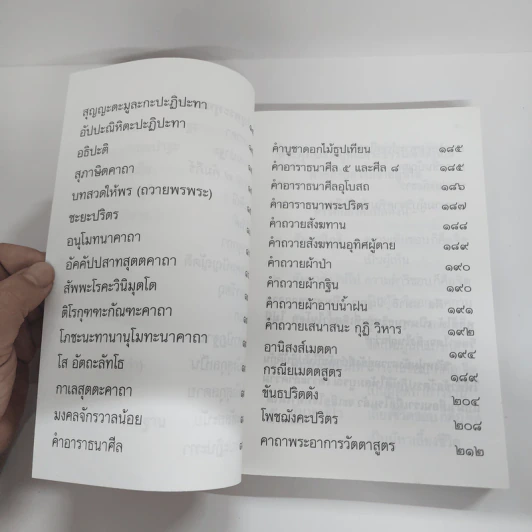 สุญญะตะมูละกะปะฏิปะทา
อัปปะณิหิตะปะฏิปะทา
อธิปะติ
สุภาษิตคาถา
บทสวดให้พร (ถวายพรพระ)
ชะยะปริตร
อนุโมทนาคาถา
อัคคัปปสาทสุตตคาถา
สัพพะโรคะวินิมุตโต
ติโรกุฑฑะกัณฑะคาถา
โภชะนะทานานุโมทะนาคาถา
โส อัตถะลัทโธ
กาเลสุตตะคาถา
มงคลจักรวาลน้อย
คำอาราธนาศีล
คำบูชาดอกไม้ธูปเทียน ๑๘๕
คำอาราธนาศีล ๕ และศีล ๘ ๑๘๕
คำอาราธนาศีลอุโบสถ ๑๘๖
คำอาราธนาพระปริตร ๑๘๗
คำถวายสังฆทาน ๑๘๘
คำถวายสังฆทานอุทิศผู้ตาย ๑๘๙
คำถวายผ้าป่า ๑๙๐
คำถวายผ้ากฐิน ๑๙๐
คำถวายผ้าอาบน้ำฝน ๑๙๑
คำถวายเสนาสนะ กุฏิ วิหาร ๑๙๒
อานิสงส์เมตตา ๑๙๔
กรณียเมตตสูตร ๑๘๙
ขันธปริตตัง ๒๐๔
โพชฌังคะปริตร ๒๐๘
คาถาพระอาการวัตตาสูตร ๒๑๒